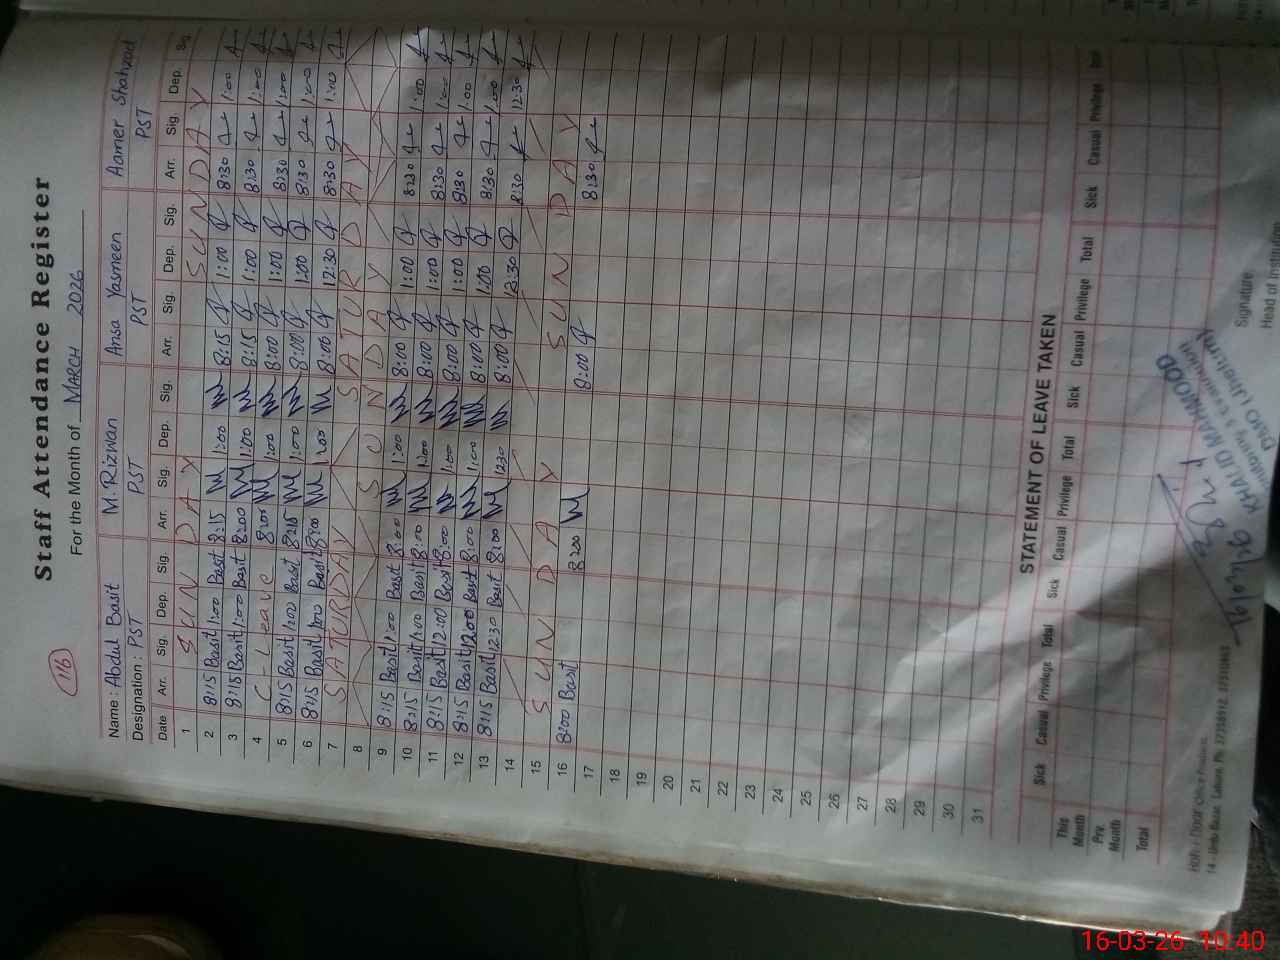 116
Staff Attendance Register
For the Month of MARCH 2026
Name : Abdul Basit M. Rizwan Ansa Yasmeen Aamer Shahzad
Designation : PST PST PST PST
Date Arr. Sig. Dep. Sig. Arr. Sig. Dep. Sig. Arr. Sig. Dep. Sig. Arr. Sig. Dep. Sig.
1 SUNDAY SUNDAY
2 8:15 Basit 1:00 Basit 8:15 1:00 8:15 1:00 8:30 1:00
3 8:15 Basit 1:00 Basit 8:00 1:00 8:15 1:00 8:30 1:00
4 C-Leave 8:00 1:00 8:00 1:00 8:30 1:00
5 8:15 Basit 1:00 Basit 8:15 1:00 8:00 1:00 8:30 1:00
6 8:15 Basit 1:00 Basit 8:00 1:00 8:00 12:30 8:30 1:00
7 SATURDAY SATURDAY
8 SUNDAY
9 8:15 Basit 1:00 Basit 8:00 1:00 8:00 1:00 8:30 1:00
10 8:15 Basit 1:00 Basit 8:00 1:00 8:00 1:00 8:30 1:00
11 8:15 Basit 12:00 Basit 8:00 1:00 8:00 1:00 8:30 1:00
12 8:15 Basit 12:00 Basit 8:00 1:00 8:00 1:00 8:30 1:00
13 8:15 Basit 12:30 Basit 8:00 12:30 8:00 12:30 8:30 12:30
14
15 SUNDAY SUNDAY
16 8:00 Basit 8:00 8:00 8:30
17
18
19
20
21
22
23
24
25
26
27
28
29
30
31
STATEMENT OF LEAVE TAKEN
Sick Casual Privilege Total Sick Casual Privilege Total Sick Casual Privilege Total Sick Casual Privilege Total
This Month
Prv. Month
Total
16/03/26
KHALID MAHMOOD
Signature
Head of Institution
14 - Urdu Bazar, Lahore.
16-03-26 10:40